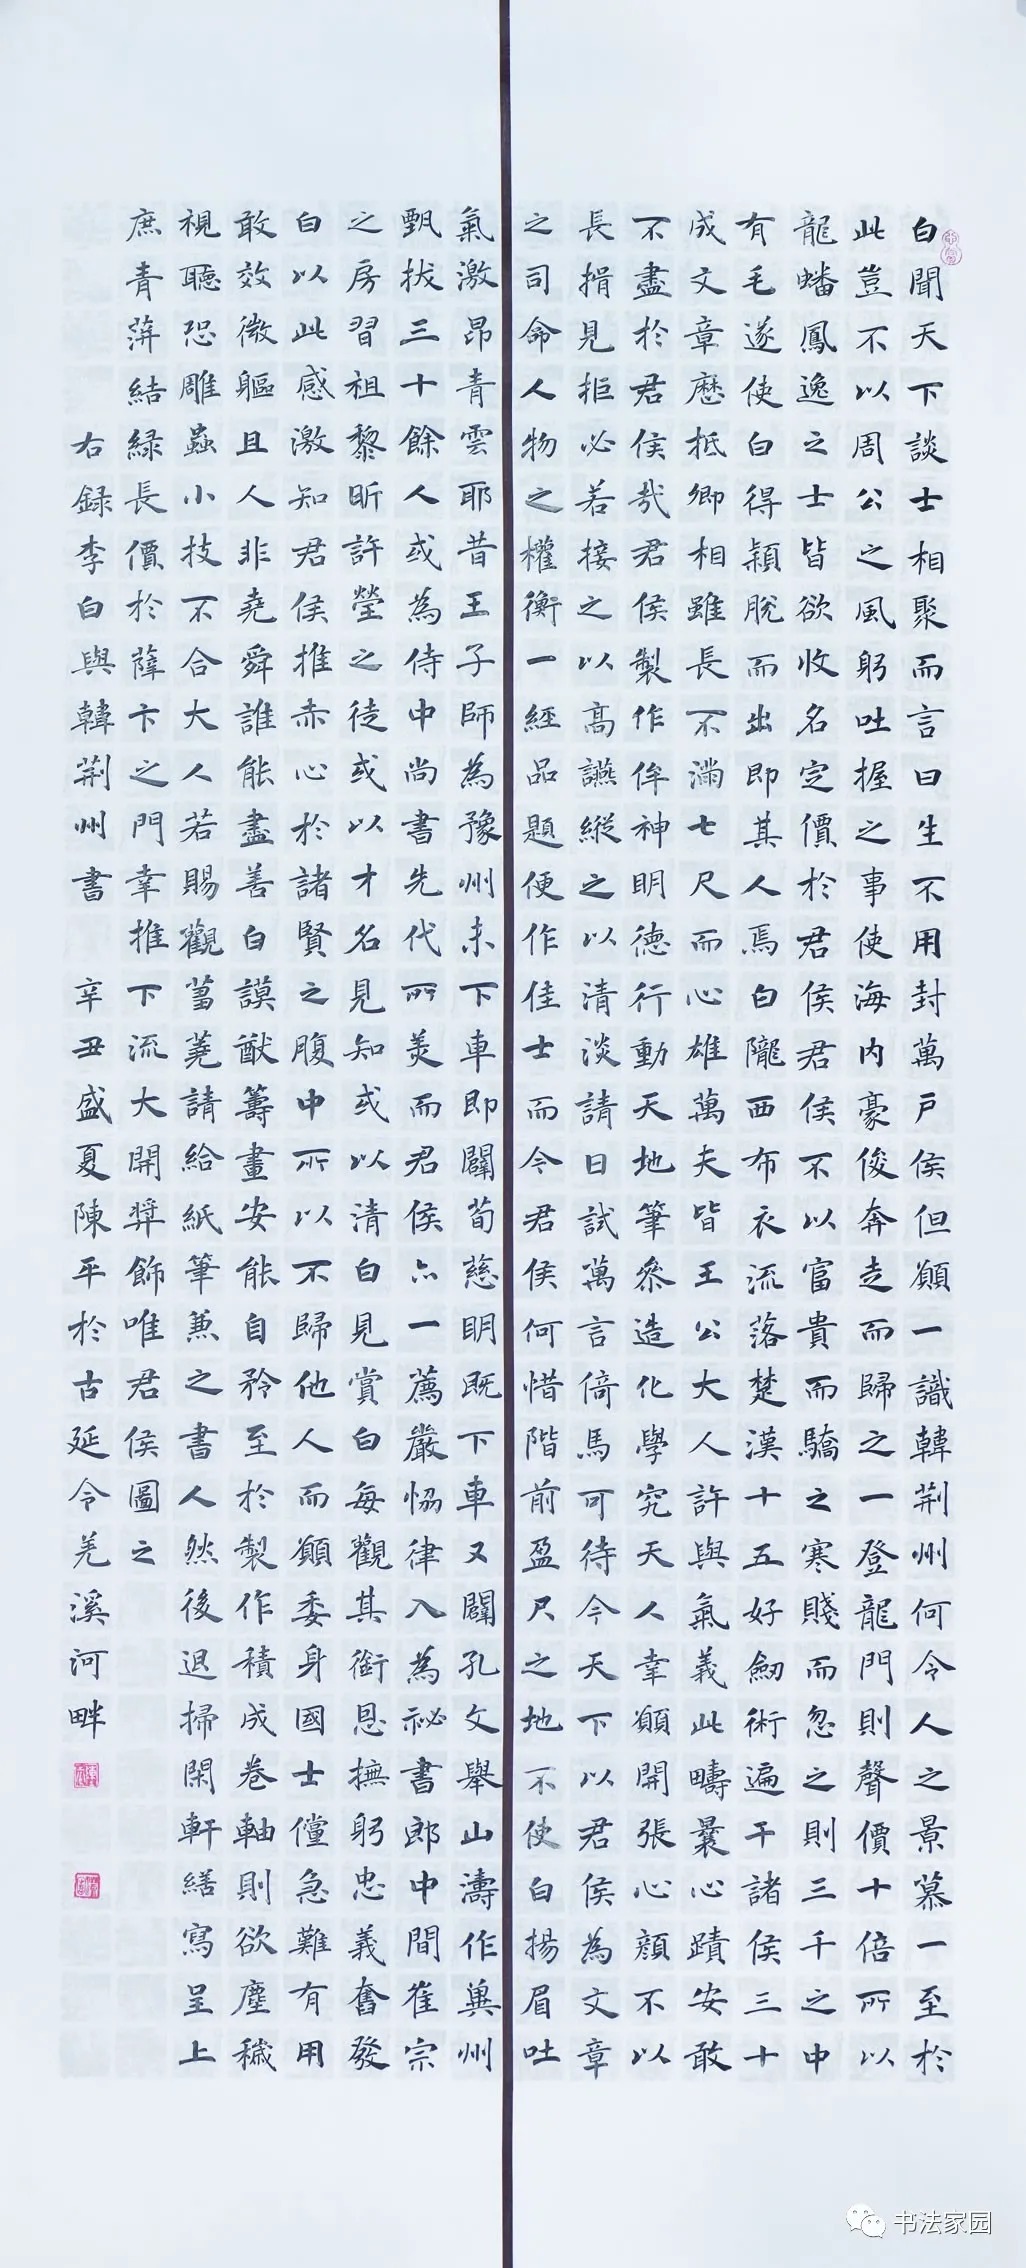 白聞天下談士相聚而言曰生不用封萬戶侯但願一識韓荆州何令人之景慕一至於
此豈不以周公之風躬吐握之事使海內豪俊奔走而歸之一登龍門則聲價十倍所以
龍蟠鳳逸之士皆欲收名定價於君侯君侯不以富貴而驕之寒賤而忽之則三千之中
有毛遂使白得穎脫而出即其人焉白隴西布衣流落楚漢十五好劒術遍干諸侯三十
成文章歷抵卿相雖長不滿七尺而心雄萬夫皆王公大人許與氣義此疇曩心蹟安敢
不盡於君侯哉君侯製作侔神明德行動天地筆參造化學究天人幸願開張心顏不以
長揖見拒必若接之以高讌縱之以清淡請日試萬言倚馬可待今天下以君侯為文章
之司命人物之權衡一經品題便作佳士而今君侯何惜階前盈尺之地不使白揚眉吐
氣激昂青雲耶昔王子師為豫州未下車即闢荀慈明既下車又闢孔文舉山濤作冀州
甄拔三十餘人或為侍中尚書先代所美而君侯亦一薦嚴協律入為祕書郎中間崔宗
之房習祖黎昕許瑩之徒或以才名見知或以清白見賞白每觀其銜恩撫躬忠義奮發
白以此感激知君侯推赤心於諸賢之腹中所以不歸他人而願委身國士儻急難有用
敢效微軀且人非堯舜誰能盡善白謨猷籌畫安能自矜至於製作積成卷軸則欲塵穢
視聽恐雕蟲小技不合大人若賜觀芻蕘請給紙筆兼之書人然後退掃閑軒繕寫呈上
庶青萍結綠長價於薩卞之門幸推下流大開獎飾唯君侯圖之
右録李白與韓荆州書 辛丑盛夏陳平於古延令羌溪河畔
书法家园